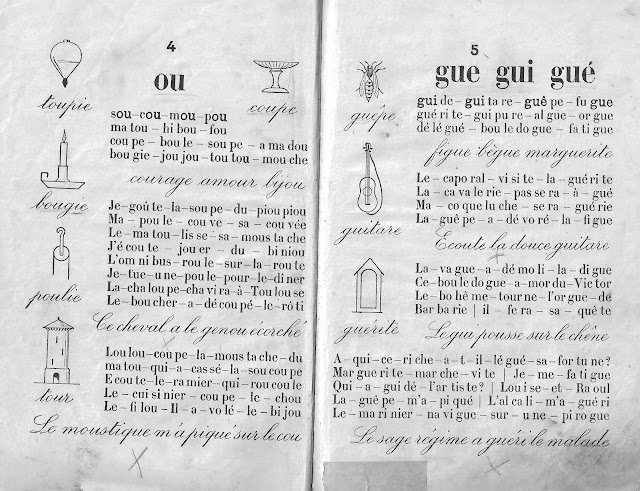 4
ou
toupie
coupe
sou–cou–mou–pou
ma tou – hi bou – fou
cou pe – bou le – sou pe – a ma dou
bou gie – jou jou – tou tou – mou che
courage amour bijou
bougie
Je–goû te–la–sou pe–du–piou piou
Ma – pou le – cou ve – sa – cou vée
Le–ma tou–lis se–sa–mous ta che
J'é cou te – jou er – du – bi niou
L'om ni bus–rou le–sur–la–rou te
Je–tue–u ne–pou le–pour–le–di ner
La–cha lou pe–cha vi ra–à–Tou lou se
Le–bou cher–a–dé cou pé–le–rô ti
poulie
Ce cheval a le genou écorché
Lou lou–cou pe–la–mous ta che–du
ma tou–qui–a–cas sé–la–sou cou pe
E cou te–le–ra mier–qui–rou cou le
Le – cui si nier – cou pe – le – chou
Le–fi lou–Il–a–vo lé–le–bi jou
tour
Le moustique m'a piqué sur le cou
5
gue gui gué
guêpe
gui de–gui ta re–guê pe–fu gue
gué ri te–gui pu re–al gue–or gue
dé lé gué–bou le do gue–fa ti gue
figue bègue marguerite
Le–ca po ral–vi si te–la–gué ri te
La–ca va le rie–pas se ra–à–gué
Ma–co que lu che–se ra–gué rie
La–guê pe–a–dé vo ré–la–fi gue
guitare
Ecoute la douce guitare
La–va gue–a–dé mo li–la–di gue
Ce–bou le do gue–a–mor du–Vic tor
Le–bo hê me–tour ne–l'or gue–de
Bar ba rie | il–fe ra–sa–quê te
guérite
Le gui pousse sur le chêne
A–qui–ce ri che–a–t–il–lé gué–sa–for tu ne?
Mar gue ri te–mar che–vi te | Je–me–fa ti gue
Qui–a–gui dé–l'ar tis te? | Lou i se–et–Ra oul
La–guê pe–m'a–pi qué | L'al ca li–m'a–gué ri
Le–ma ri nier–na vi gue–sur–u ne–pi ro gue
Le sage régime a guéri le malade